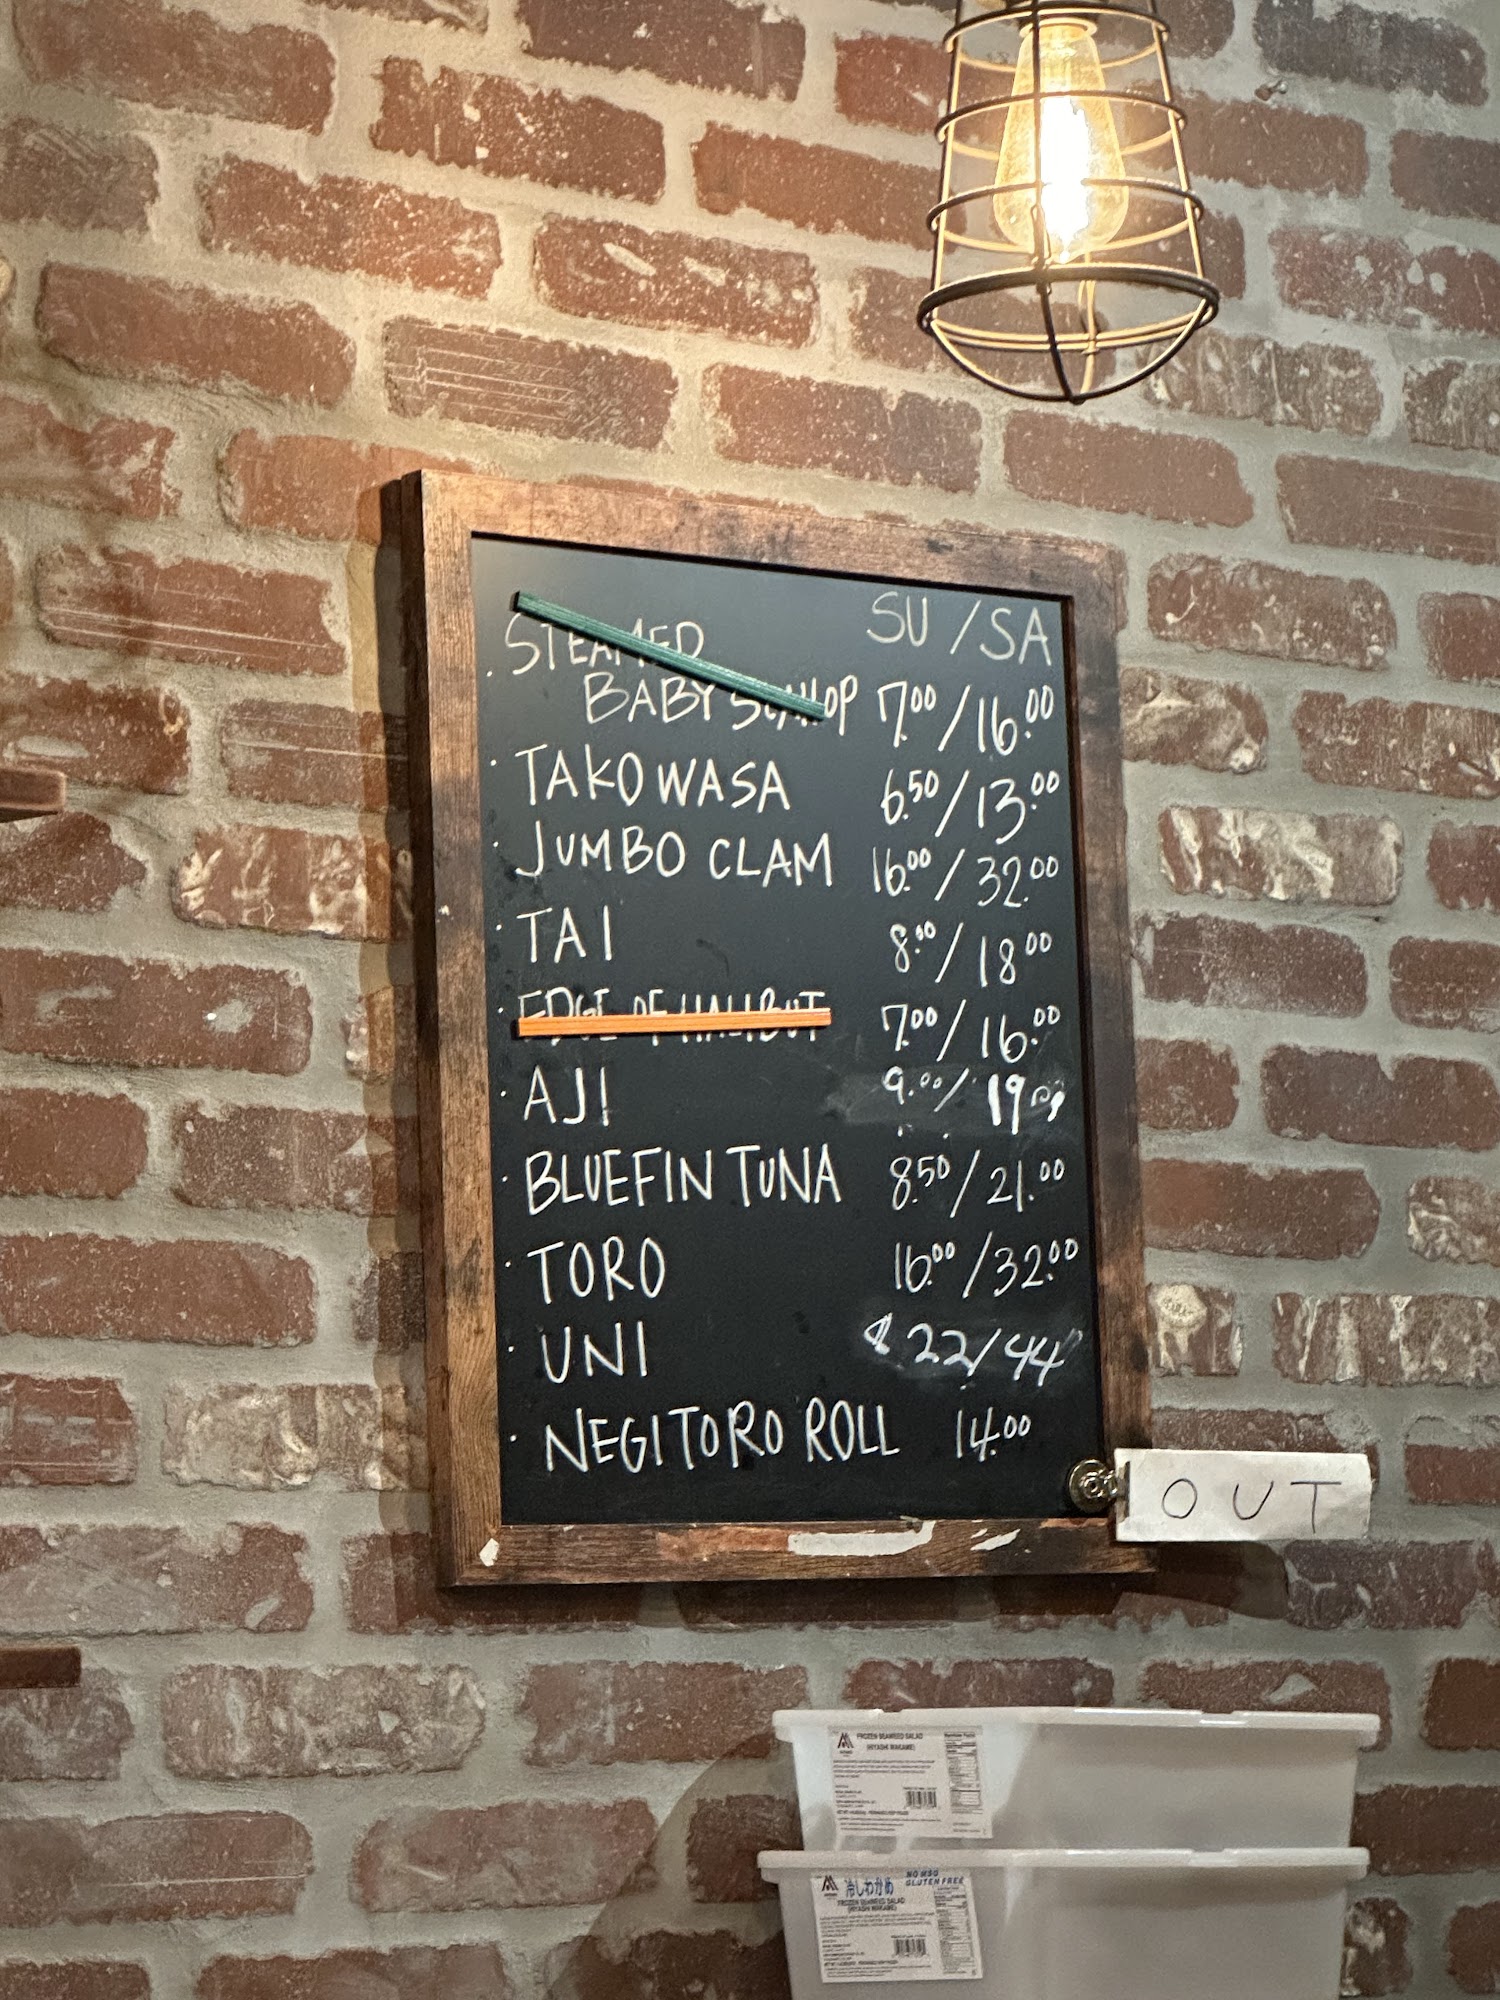 SU / SA
STEAMED
BABY SCALLOP 7.00 / 16.00
TAKO WASA 6.50 / 13.00
JUMBO CLAM 16.00 / 32.00
TAI 8.00 / 18.00
EDGE OF HALIBUT 7.00 / 16.00
AJI 9.00 / 19.00
BLUEFIN TUNA 8.50 / 21.00
TORO 16.00 / 32.00
UNI $22/44
NEGITORO ROLL 14.00
OUT
FROZEN SEAWEED SALAD
(HIYASHI WAKAME)
NO MSG
GLUTEN FREE
冷しわかめ
FROZEN SEAWEED SALAD
(HIYASHI WAKAME)